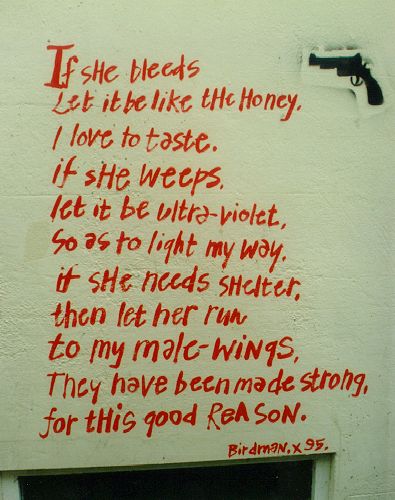 If sHe bleeds
Let it be like tHe Honey.
I love to taste.
if sHe weeps.
let it be ultra-violet,
So as to light my way.
if sHe needs sHelter,
then let her run
to my male-wings.
They have been made strong,
for tHis good ReaSoN.
BirdmaN. x 95.